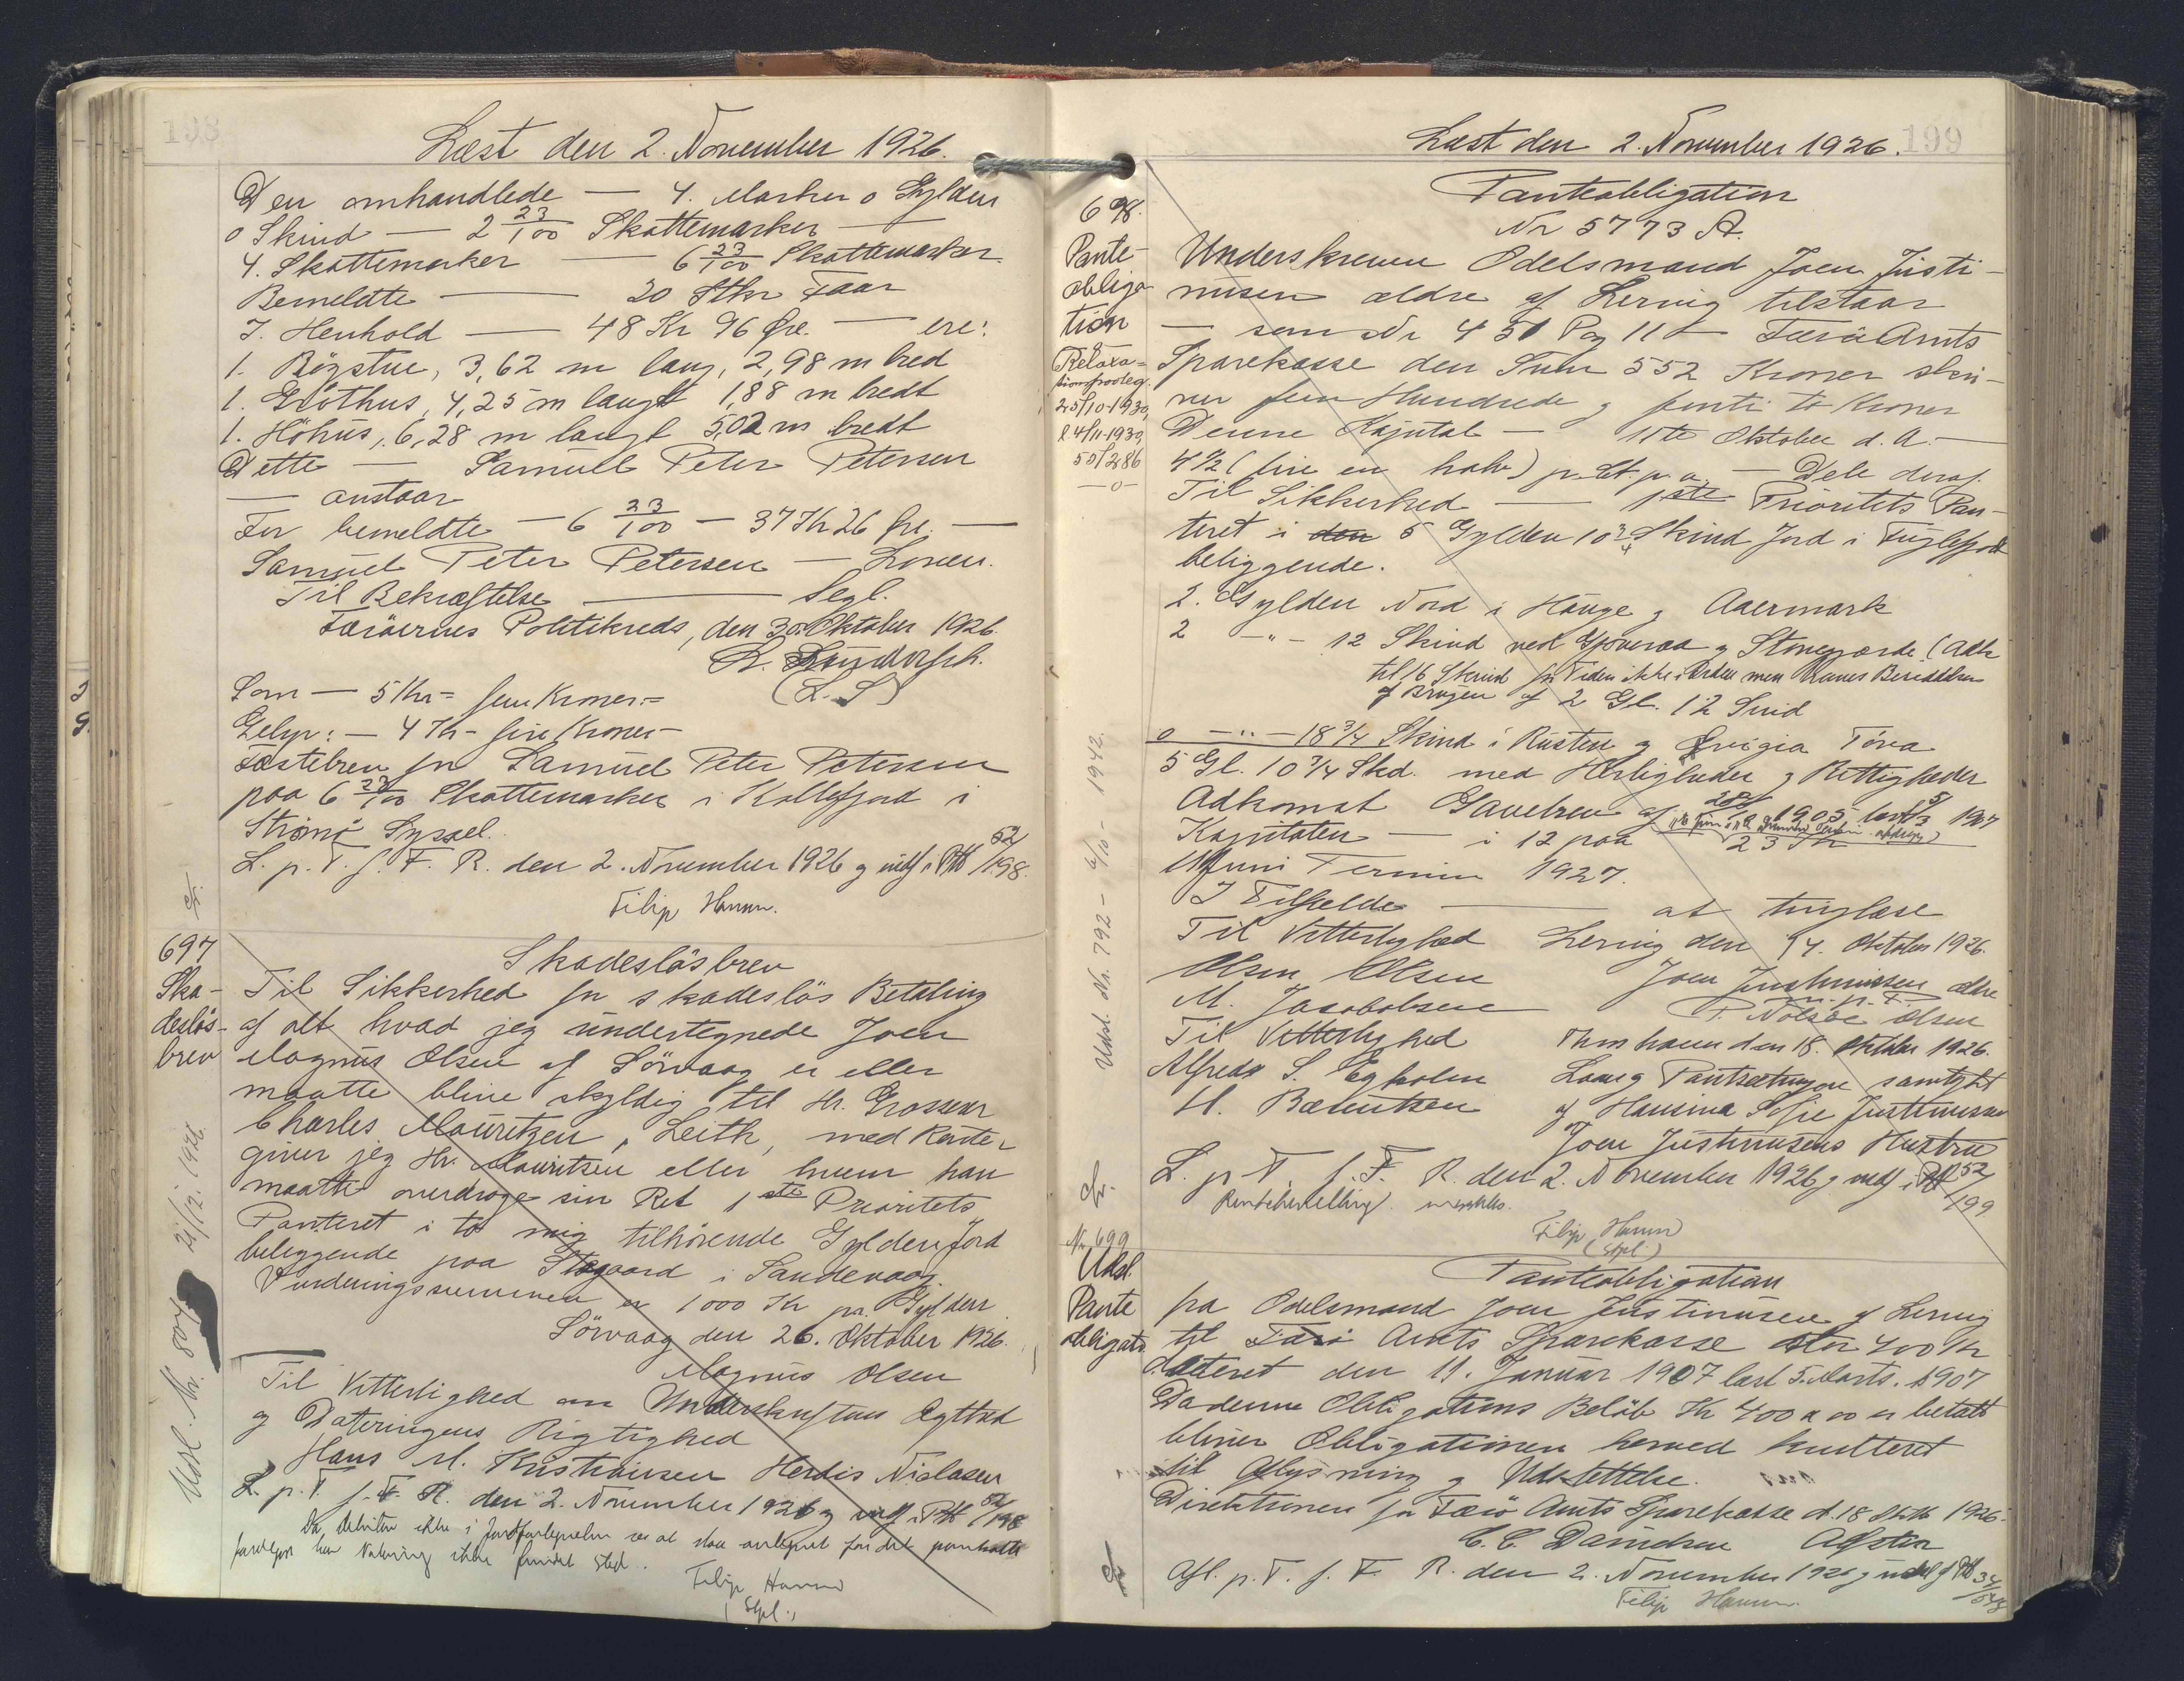 198
Læst den 2. November 1926.
Den omhandlede — 4. Marker o Gylden
o Skind — 2 23/100 Skattemarker —
4. Skattemarker — 6 23/100 Skattemarker
Bemeldte — 20 Stkr Faar
I. Henhold — 48 Kr 96 Øre. — ere:
1. Røgstue, 3,62 m lang, 2,98 m bred
1. Gróthus, 4,25 m langt 1,88 m bredt
1. Höhus, 6,28 m langt 5,02 m bredt
Dette — Samuel Peter Petersen
— anstaar
For bemeldte — 6 23/100 — 37 Kr 26 Øre. —
Samuel Peter Petersen — Loven.
Til Bekræftelse — Segl.
Færøernes Politikreds, den 30. Oktober 1926.
(L. S)
Som — 5 Kr = fem Kroner =
Gebyr: — 4 Kr - fire Kroner -
Fæstebrev for Samuel Peter Petersen
paa 6 23/100 Skattemarker i Kollefjord i
Strömö Syssel.
L. p. T. f. F. R. den 2. November 1926 g indf i Ptb 52/198.
Filip Hansen.
697
Ska-
deslös-
brev
Udsl. Nr. 807 21/12. 1926.
Skadeslösbrev
Til Sikkerhed for skadeslös Betaling
af alt hvad jeg undertegnede Joen
Magnus Olsen af Sörvaag er eller
maatte blive skyldig til Hr. Grosserer
Charles Mauritzen, Leith, med Renter
giver jeg Hr. Mauritzen eller hvem han
maatte overdrage sin Ret 1ste Prioritets
Panteret i to mig tilhörende Gylden Jord
beliggende paa Stegaard i Sandevaag.
Vurderingssummen er 1000 Kr pr Gylden
Sörvaag den 26. Oktober 1926.
Magnus Olsen
Til Vitterlighed om Underskriftens Ægthed
og Dateringens Rigtighed
Hans M. Kristiansen Herdis Niclasen
L. p. T. f. F. R. den 2. November 1926 g indf i Ptb 52/198
Da debitor ikke i Jordfortegnelsen ses at staa antegnet for det pantsatte
har Notering ikke fundet Sted.
Filip Hansen
(Stpl.)
199
Læst den 2. November 1926.
698.
Pante-
obliga-
tion
Relaxa-
25/10-1930,
l 4/11-1930,
50/286
—o—
Udsl. Nr. 792 - 6/10 - 1942.
Panteobligation
Nr 5773 A.
Underskreven Odelsmand Joen Justi-
nusen ældre af Lervig tilstaar
— som Nr 451 Pag 11 — Færö Amts
Sparekasse den Sum 552 Kroner skri-
ver fem Hundrede g femti to Kroner
Denne Kapital — 11te Oktober d. A. —
4½ (fire en halv) p. Ct. p. a. — Dele deraf.
Til Sikkerhed — 1ste Prioritets Pan-
teret i den 5 Gylden 10¾ Skind Jord i Fuglefjord
beliggende.
2. Gylden Nord i Hauge g Aaermark
2 — " — 12 Skind ved Gjoveraa g Stonegærde (Adk
til 16 Skind for Tiden ikke i Orden men
af Brugen af 2 Gl. 12 Snid
0 — " — 18¾ Skind i Rusten g Tova
5 Gl. 10¾ Skd. med Herligheder g Rettigheder
Adkomst Gavebrev af 28/ 1905 læst 5/3 1907
Kapitalen — i 12 paa 23 Kr
11 Juni Termin 1927.
I Tilfælde — at tinglæse
Til Vitterlighed Lervig den 14. Oktober 1926.
Olsen Joen Justinussen ældre
M. Jacobsen m. p. P.
P. Nolsöe Olsen
Til Vitterlighed Thorshavn den 18. Oktober 1926.
Alfred S. Egholm Laan g Pantsætningen samtykt
H. Bærentsen af Hansina Sofie Justinussen
Joen Justinusens Hustru
L. p. T. f. F. R. den 2. November 1926 g indf i Ptb 52/199
Filip Hansen
(Stpl.)
Nr 699
Udsl.
Pante
obligatn
Panteobligation
fra Odelsmand Joen Justinusen af Lervig
til Færö Amts Sparekasse stor 400 Kr
dateret den 11. Januar 1907 læst 5. Marts. 1907
Da denne Obligations Belöb Kr 400 x 00 er betalt
bliver Obligationen herved kvitteret
til Aflysning g Udslettelse.
Direktionen for Færö Amts Sparekasse d. 18 Oktb 1926.
C. C. Danielsen
Afl. p. T. f. F. R. den 2. November 1926 g udsl. i Ptb 34/548
Filip Hansen.